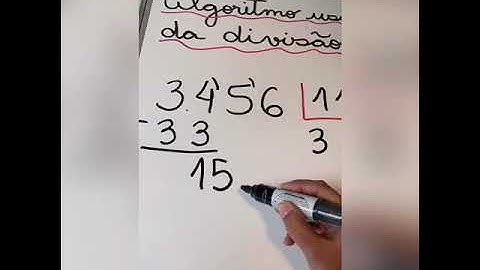 Algoritmo
da divisão
3.4'5'6 11
- 33 3
15